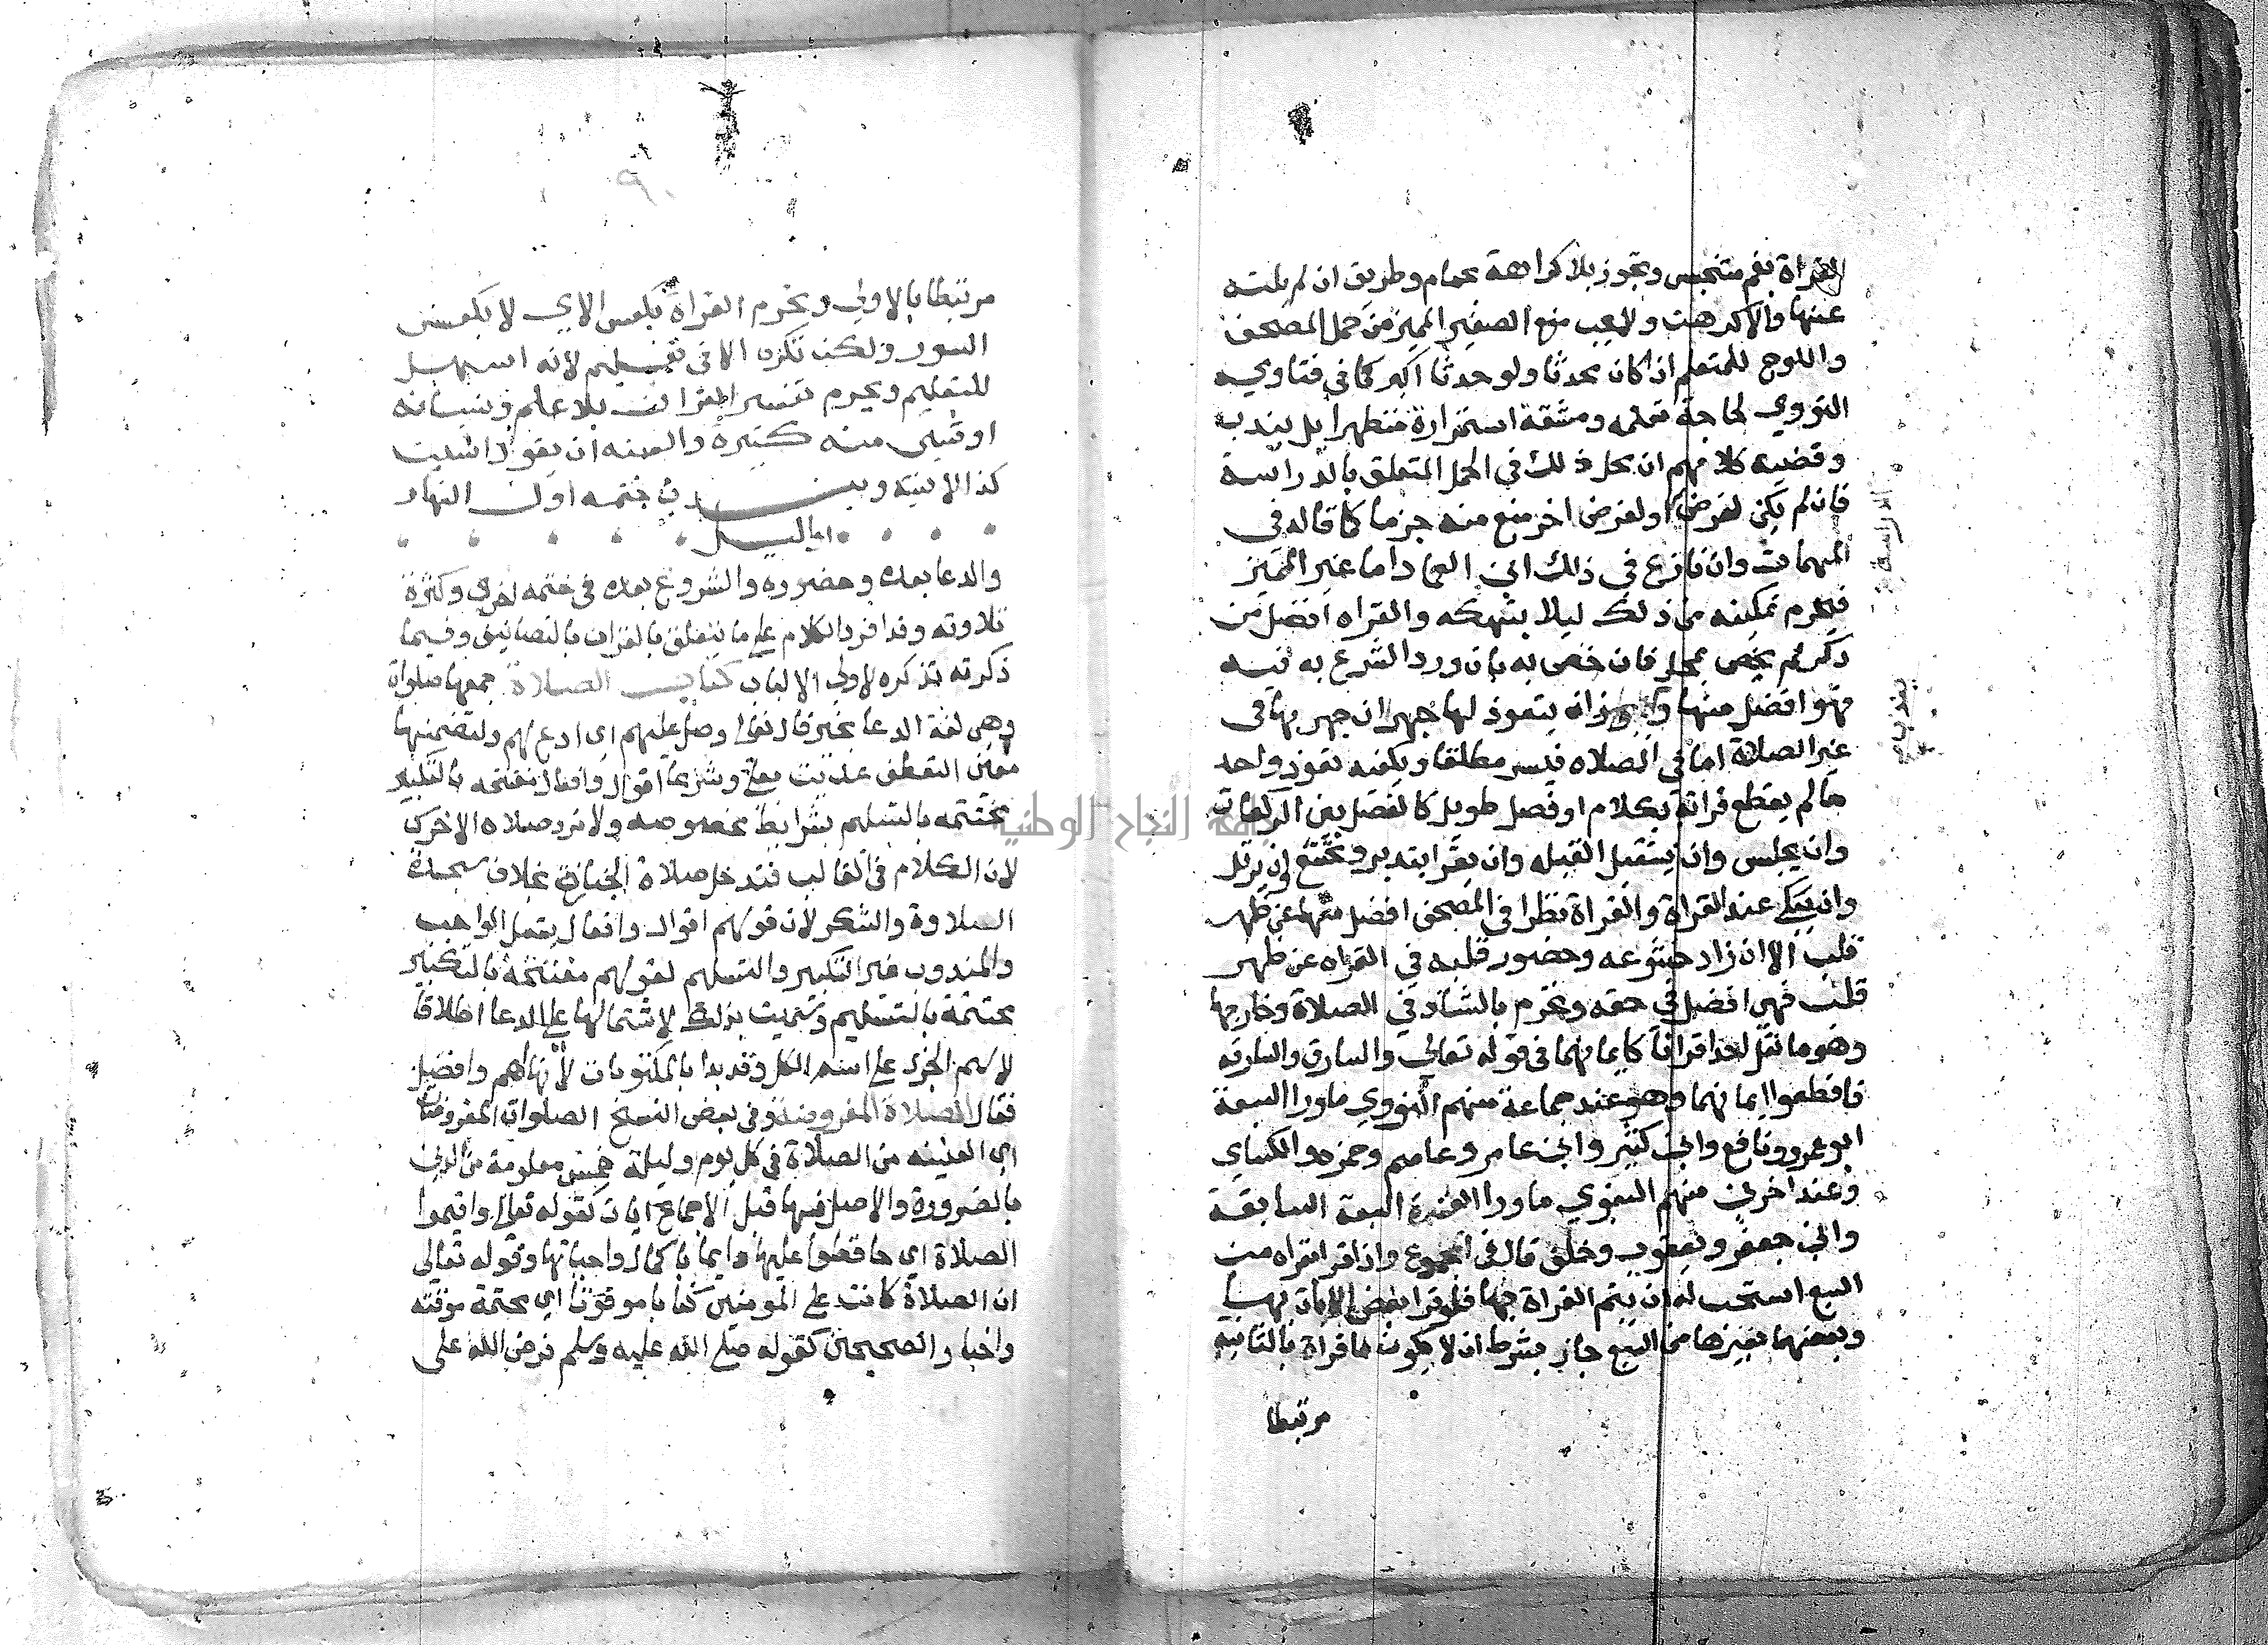 القراة بفم متنجس وتجوز بلا كراهة بحمام وطريق ان لم يلته
عنها والا كرهت ولا يجب منع الصغير المميز من حمل المصحف
واللوح للمتعلم اذا كان محدثا ولو حدثا اكبر كما في فتاوي
النووي لحاجة تعلمه ومشقة استمراره متطهرا بل يندب
وقضية كلامهم ان محل ذلك في الحمل المتعلق بالدراسة
فان لم يكن لغرض او لغرض اخر منع منه جزما كما قاله في
المهمات وان نازع في ذلك ابن العماد اما غير المميز
فيحرم تمكينه من ذلك ليلا ينتهكه والقراه افضل من
ذكر لم يخص بمحل فان خص به بان ورد الشرع به فيه
فهو افضل منها وان يتعوذ لها جهرا ان جهر بها في
غير الصلاة اما في الصلاه فيسر مطلقا ويكفيه تعوذ واحد
ما لم يقطع قراته بكلام او فصل طويل كالفصل بين الركعات
وان يجلس وان يستقبل القبله وان يقرا بتدبر وتخشع وان يرتل
وان يبكي عند القراة والقراة نظرا في المصحف افضل منها عن ظهر
قلب الا ان زاد خشوعه وحضور قلبه في القراه عن ظهر
قلب فهي افضل في حقه وتحرم بالشاذ في الصلاة وخارجها
وهو ما نقل احدا قرانا كايمانهما في قوله تعالى والسارق والسارقه
فاقطعوا ايمانهما وهو عند جماعة منهم النووي ما ورا السبعة
ابو عمرو ونافع وابن كثير وابن عامر وعاصم وحمزه والكساي
وعند اخرين منهم البغوي ما ورا العشرة السبعة السابقة
وابي جعفر ويعقوب وخلف قال في المجموع واذا قرا بقراه من
السبع استحب له ان يتم القراة بها فلو قرا بعض الايات بها
وبعضها بغيرها من السبع جاز بشرط ان لا يكون ما قراه بالثانيه
مرتبطا
الدراسة
يندب
٩٠
مرتبطا بالاولي وتحرم القراة بعكس الاي لا بعكس
السور ولكن تكره الا في تعليم لانه اسهل
للتعليم ويحرم تفسير القران بلا علم ونسيانه
او شيي منه كبيرة والسنه ان يقول انسيت
كذا لا نسيته ويندب ختمه اول النهار
او الليل
والدعا بعده وحضوره والشروع بعده في ختمه اخري وكثرة
تلاوته وقد افرد الكلام علي ما يتعلق بالقران بالتصانيف وفيما
ذكرته تذكره لاولي الالباب كتاب الصلاة جمعها صلوات
وهي لغة الدعا بخير قال تعالى وصل عليهم اي ادع لهم ولتضمنها
معنى التعطف عديت بعلي وشرعا اقوال وافعال مفتتحه بالتكبير
مختتمه بالتسليم بشرايط مخصوصه ولا ترد صلاه الاخرس
لان الكلام في الغالب فتدخل صلاة الجنازة بخلاف سجدة
التلاوة والشكر لان قولهم اقوال وافعال يشمل الواجب
والمندوب غير التكبير والتسليم لقولهم مفتتحة بالتكبير
مختتمة بالتسليم وسميت بذلك لاشتمالها علي الدعا اطلاقا
لاسم الجزء علي اسم الكل وقد بدا بالمكتوبات لانها اهم وافضل
فقال الصلاة المفروضة وفي بعض النسخ الصلوات المفروضات
اي العينيه من الصلاة في كل يوم وليلة خمس معلومة من الدين
بالضرورة والاصل فيها قبل الاجماع ايات كقوله تعالى واقيموا
الصلاة اي حافظوا عليها دايما باكمال واجباتها وقوله تعالي
ان الصلاة كانت علي المومنين كتابا موقوتا اي محتمة موقته
واخبار الصحيحين كقوله صلي الله عليه وسلم فرض الله على
جامعة النجاح الوطنية